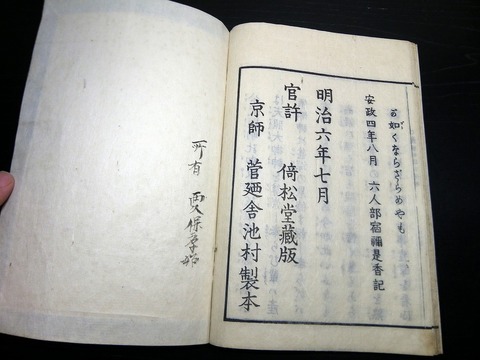 如くならざらめやも
安政四年八月 六人部宿禰是香記
明治六年七月
官許 倚松堂藏版
京師 菅廼舎池村製本
所有